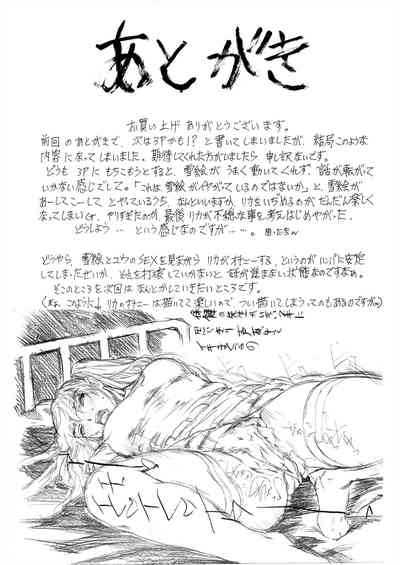 あとがき
お買い上げありがとうございます。
前回のあとがきで、次は3Pかも!?と書いてしまいましたが、結局このような
内容になってしまいました。期待してくれた方がいましたら申し訳ないです。
どうも3Pにもちこもうとすると、雪絵がうまく動いてくれず、話が転がって
いかない感じでして。「これは雪絵がイヤがっているのではないか」と、雪絵が
あーしてこーして とやっているうち、なんといいますか、リカをいぢめるのがだんだん楽しく
なってしまい
やりすぎたのか、最後リカが不穏な事を考えはじめやがった。
どうしよう…という感じなのですが…。
どうやら、雪絵とユウのSEXを見ながらリカがオナニーする、というのが
安定
してしまったせいか、それを打破していかないと話が進まない状態なのですなぁ。
そこのところを次回はなんとかしていきたいところです。
このように↓リカのオナニーは描いてて楽しいので、つい描いてしまうってのもあるのですが